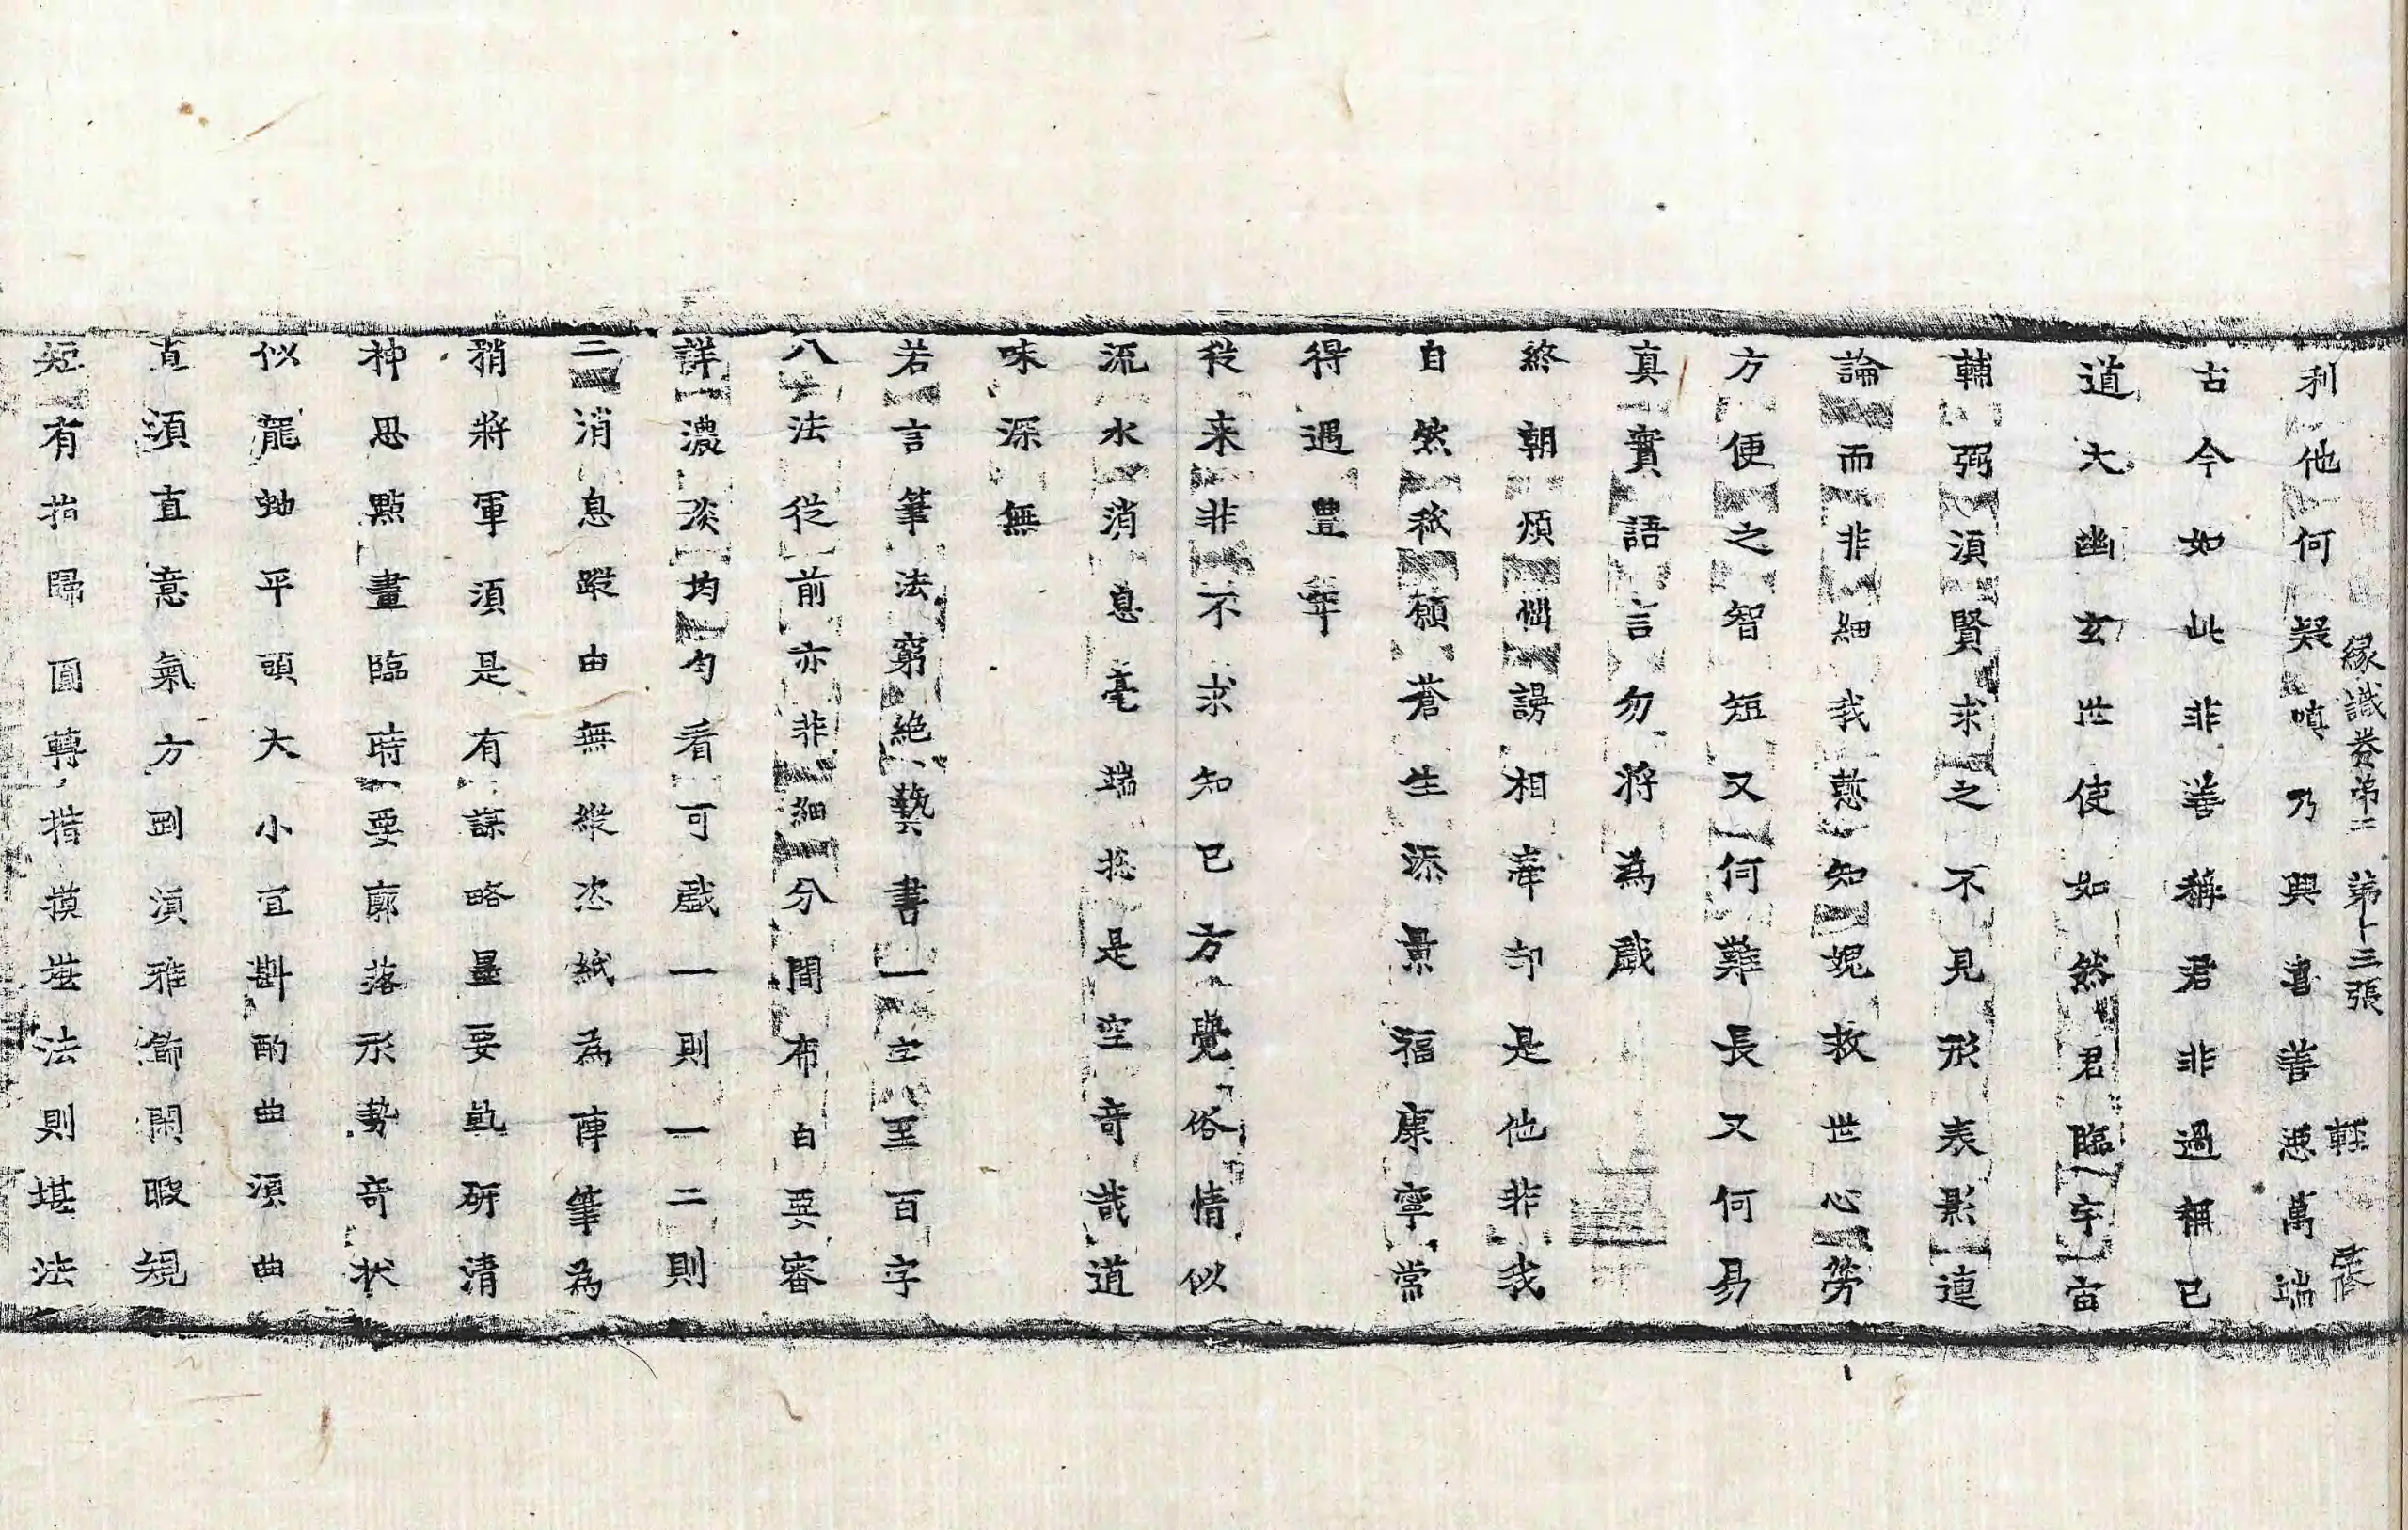 緣識卷第二　第十三張　輕
利他何疑嗔乃興喜善惡萬端
古今如此非善稱君非過稱己
道大幽玄世使如然君臨宇宙
輔弼須賢求之不見形表影連
論而非細我慙知媿救世心勞
方便之智短又何難長又何易
真實語言勿將為戲
終朝煩惱謗相牽却是他非我
自然秋願蒼生添景福康寧常
得遇豊年
從来非不求知已方覺俗情似
流水消息毫端揔是空奇哉道
味深無
若言筆法窮絶藝書一字至百字
八法從前亦非細分間布白要審
詳濃淡均勻看可戲一則一二則
二消息蹤由無縱恣紙為陣筆為
矟將軍須是有謀略墨要乹研清
神思點畫臨時要廓落形勢奇状
似龍虵平頭大小冝斟酌曲須曲
直須直意氣方剛須雅飾閑暇規
矩有指歸圓轉揩摸楚法則堪法